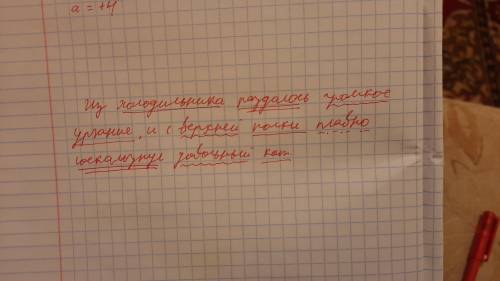 а = +4
Из холодильника раздалось громкое
урчание, и с верхней полки плавно
соскользнул довольный кот.